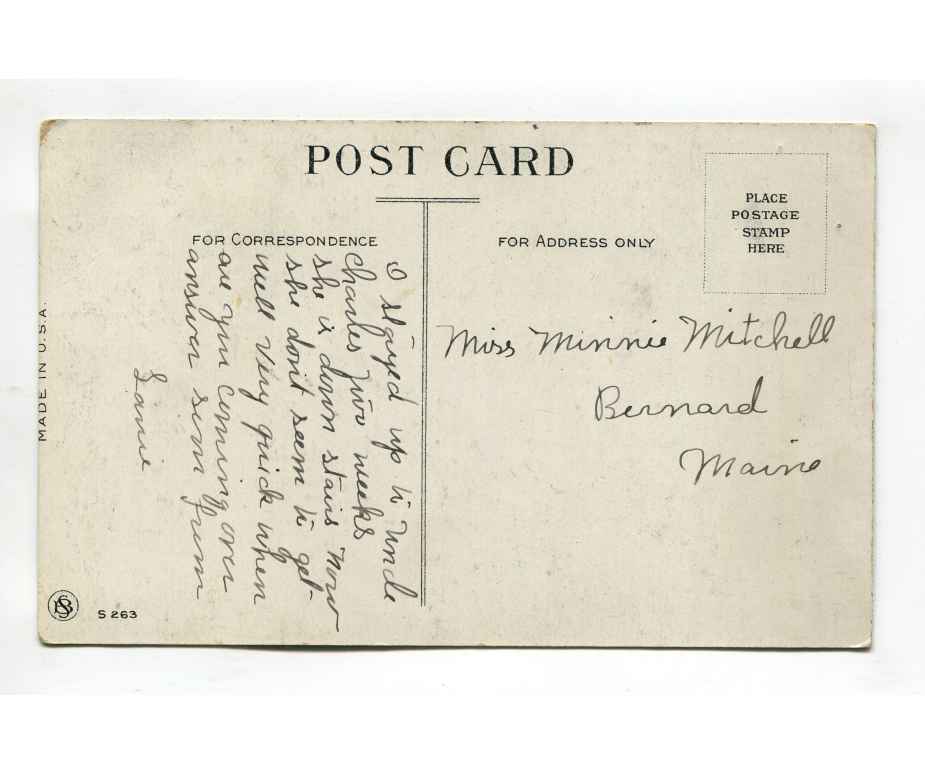 POST CARD
PLACE
POSTAGE
STAMP
HERE
FOR CORRESPONDENCE
FOR ADDRESS ONLY
I stayed up to Uncle
Charles two weeks
she is down stairs now
she dont seem to get
well very quick when
are you coming over
answer soon from
Miss Minnie Mitchell
Bernard
Maine
MADE IN U.S.A.
S 263